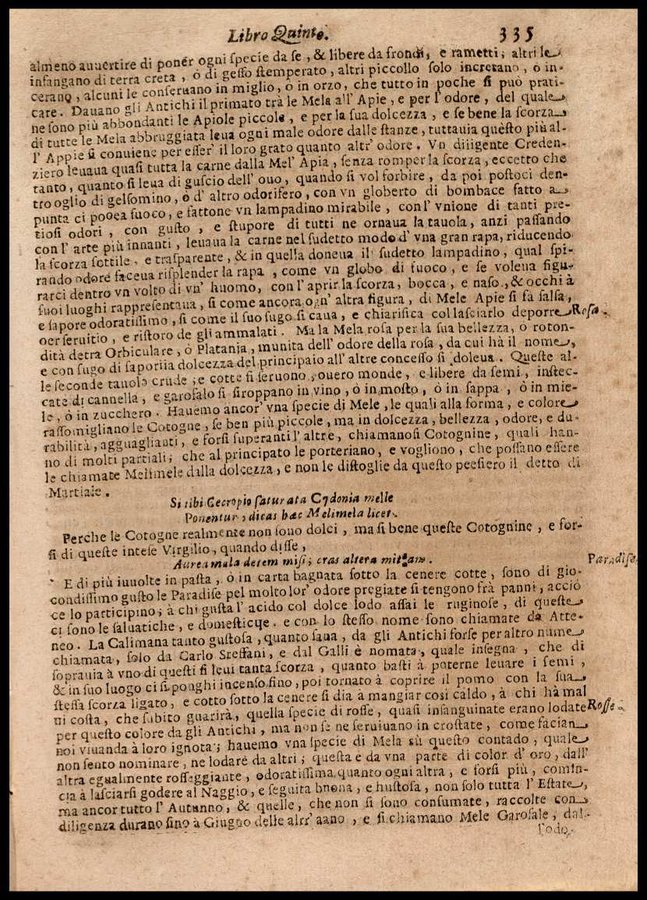 Libro Quinto. 335
almeno auuertire di poner ogni specie da se, & libere da frondi, e rametti; altri le
infangano di terra creta, ò di gesso stemperato, altri piccollo solo incretano, ò in-
cerano, alcuni le conseruano in miglio, ò in orzo, che tutto in poche si può prati-
care. Dauano gli Antichi il primato trà le Mela all' Apie, e per l' odore, del quale
ne sono più abbondanti le Apiole piccole, e per la sua dolcezza, e se bene la scorza
di tutte le Mela abbruggiata leua ogni male odore dalle stanze, tuttauia questo più al-
l' Appie si conuiene per esser' il loro grato quanto altr' odore. Vn diligente Creden-
ziero leuaua quasi tutta la carne dalla Mel' Apia, senza romper la scorza, eccetto che
tanto, quanto si leua di guscio dell' ouo, quando si vol forbire, da poi postoci den-
tro oglio di gelsomino, ò d' altro odorifero, con vn globerto di bombace fatto a
punta ci ponea fuoco, e fattone vn lampadino mirabile, con l' vnione di tanti pre-
tiosi odori, con gusto, e stupore di tutti ne ornaua la tauola, anzi passando
con l' arte più innanti, leuaua la carne nel sudetto modo d' vna gran rapa, riducendo
la scorza sottile, e trasparente, & in quella doneua il sudetto lampadino, qual spi-
rando odore faceua risplender la rapa, come vn globo di fuoco, e se voleua figu-
rarci dentro vn volto di vn' huomo, con l' aprir la scorza, bocca, e naso, & occhi à
suoi luoghi rappresentaua, si come ancora ogn' altra figura, di Mele Apie si fà salsa,
e sapore odoratissimo, si come il suo sugo si caua, e chiarifica col lasciarlo deporre Rosa.
per seruitio, e ristoro de gli ammalati. Ma la Mela rosa per la sua bellezza, o roton-
dità detra Orbiculare, ò Platania, munita dell' odore della rosa, da cui hà il nome,
e con sugo di saporita dolcezza del principaio all' altre concesso si doleua. Queste al-
le seconde tauole crude, e cotte si seruono, ouero monde, e libere da semi, instec-
cate di cannella, e garofalo si siroppano in vino, ò in mosto, ò in sappa, ò in mie-
le, ò in zucchero. Hauemo ancor' vna specie di Mele, le quali alla forma, e colore
rassomigliano le Cotogne, se ben più piccole, ma in dolcezza, bellezza, odore, e du-
rabilità, agguaglianti, e forsi superanti l' altre, chiamansi Cotognine, quali han-
no di molti partiali; che al principato le porteriano, e vogliono, che possano essere
le chiamate Melimele dalla dolcezza, e non le distoglie da questo pensiero il detto di
Martiale.
Si tibi Cecropio saturata Cydonia melle
Ponentur, dicas hæc Melimela licet.
Perche le Cotogne realmente non sono dolci, ma si bene queste Cotognine, e for-
si di queste intese Virgilio, quando disse,
Aurea mala decem misi; cras altera mittam. Paradise.
E di più inuolte in pasta, ò in carta bagnata sotto la cenere cotte, sono di gio-
condissimo gusto le Paradise pel molto lor' odore pregiate si tengono frà panni, acciò
ce lo participino; à chi gusta l' acido col dolce lodo assai le ruginose, di queste
ci sono le saluatiche, e domesticqe. e con lo stesso nome sono chiamate da Atte-
neo. La Calimana tanto gustosa, quanto sana, da gli Antichi forse per altro nume
chiamata, solo da Carlo Steffani, e dal Galli è nomata, quale insegna, che di
sopra uia à vno di questi si leui tanta scorza, quanto basti à poterne leuare i semi,
& in suo luogo ci si ponghi incenso fino, poi tornato à coprire il pomo con la sua
stessa scorza ligato, e cotto sotto la cenere si dia à mangiar così caldo, à chi hà mal
ni costa, che subito guarirà, quella specie di rosse, quasi insanguinate erano lodate Rosse.
per questo colore da gli Antichi, ma non se ne seruiuano in crostate, come facian
noi viuanda à loro ignota; hauemo vna specie di Mela sù questo contado, quale
non sento nominare, ne lodare da altri; questa e da vna parte di color d' oro, dall'
altra egualmente rosseggiante, odoratissima quanto ogni altra, e forsi più, comin-
cia à lasciarsi godere al Naggio, e seguita buona, e hustosa, non solo tutta l' Estate,
ma ancor tutto l' Autunno, & quelle, che non si sono consumate, raccolte con
diligenza durano sino à Giugno delle altr' anno, e si chiamano Mele Garofale, dal-
l'odo-